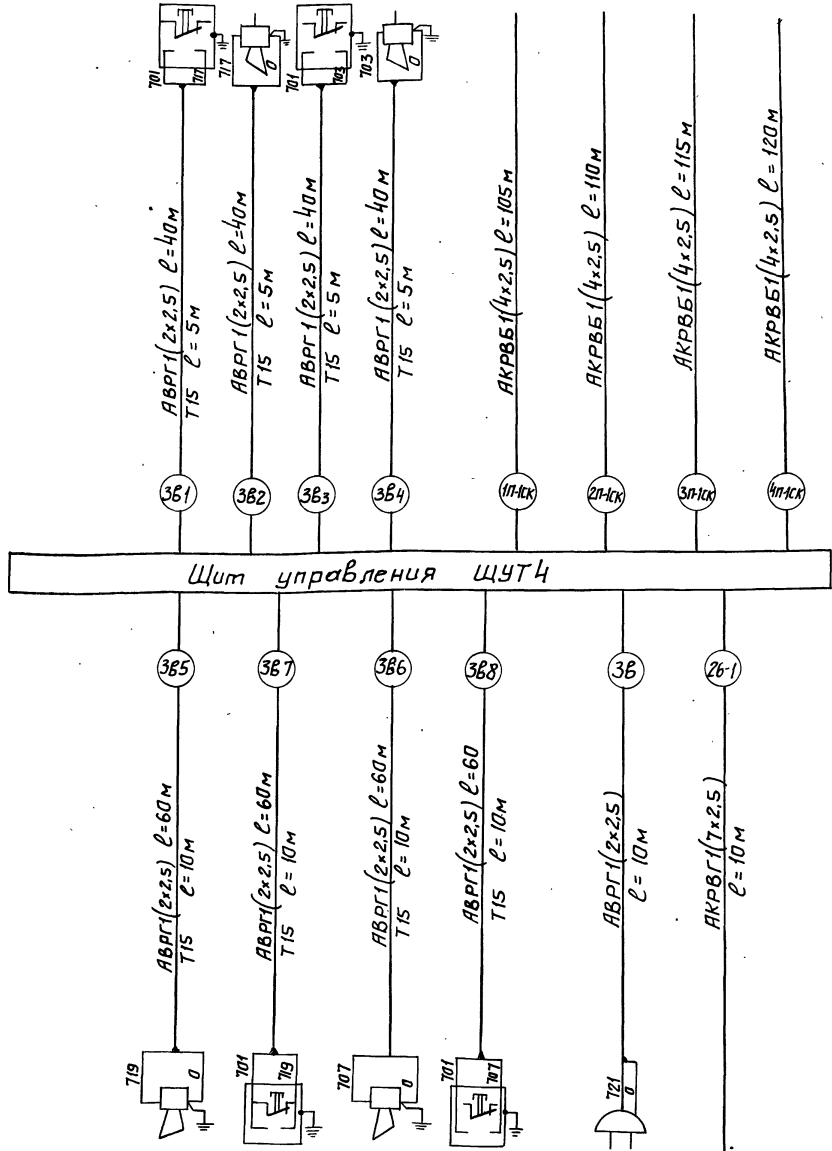 701 717
717 0
701 703
703 0
АВРГ1(2х2,5) ℓ=40м
Т15 ℓ=5м
АВРГ1(2х2,5) ℓ=40м
Т15 ℓ=5м
АВРГ1(2х2,5) ℓ=40м
Т15 ℓ=5м
АВРГ1(2х2,5) ℓ=40м
Т15 ℓ=5м
АКРВБ1(4х2,5) ℓ=105м
АКРВБ1(4х2,5) ℓ=110м
АКРВБ1(4х2,5) ℓ=115м
АКРВБ1(4х2,5) ℓ=120м
3в1
3в2
3в3
3в4
1П-1СК
2П-1СК
3П-1СК
4П-1СК
Щит управления ЩУТ4
3в5
3в7
3в6
3в8
3в
2б-1
АВРГ1(2х2,5) ℓ=60м
Т15 ℓ=10м
АВРГ1(2х2,5) ℓ=60м
Т15 ℓ=10м
АВРГ1(2х2,5) ℓ=60м
Т15 ℓ=10м
АВРГ1(2х2,5) ℓ=60
Т15 ℓ=10м
АВРГ1(2х2,5)
ℓ=10м
АКРВГ1(7х2,5)
ℓ=10м
719 0
701 719
707 0
701 707
721 0